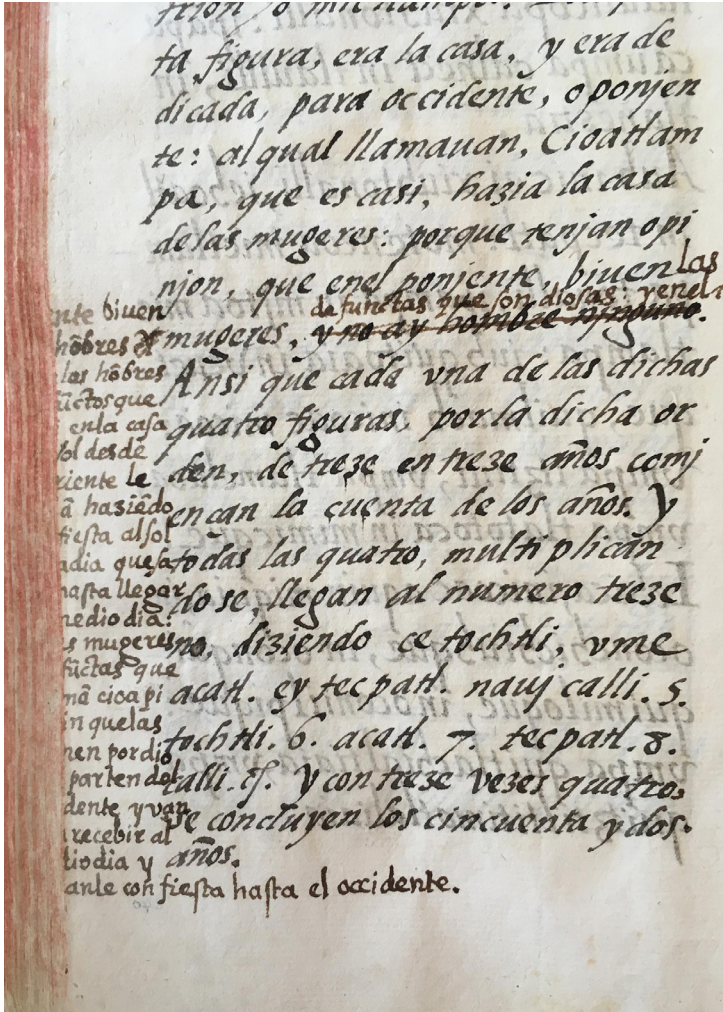 ta figura, era la casa, y era de
dicada, para occidente, o ponjen
te: al qual llamauan, Cioatlam
pa, que es casi, hazia la casa
delas mugeres: porque tenjan opi
njon, que enel ponjente, biuen las
defunctas que son diosas: y enel
mugeres, y no ay hombre ninguno.
Ansi que cada vna de las dichas
quatro figuras, por la dicha or
den, de treze en treze años comj
ençan la cuenta de los años. Y
todas las quatro, multiplican
dose, llegan al numero treze
no, diziendo ce tochtli, vme
acatl. ey tecpatl. nauj calli. 5.
tochtli. 6. acatl. 7. tecpatl. 8.
calli. &. Y con treze vezes quatro,
se concluyen los cincuenta y dos.
años.
nte biuen
hõbres
los hõbres
que
enla casa
sol desde
riente le
haziẽdo
fiesta al sol
hasta llegar
medio dia:
mugeres
que
cioapi
quelas
por dio
parten del
dente y van
recebir al
dia y
anle con fiesta hasta el occidente.